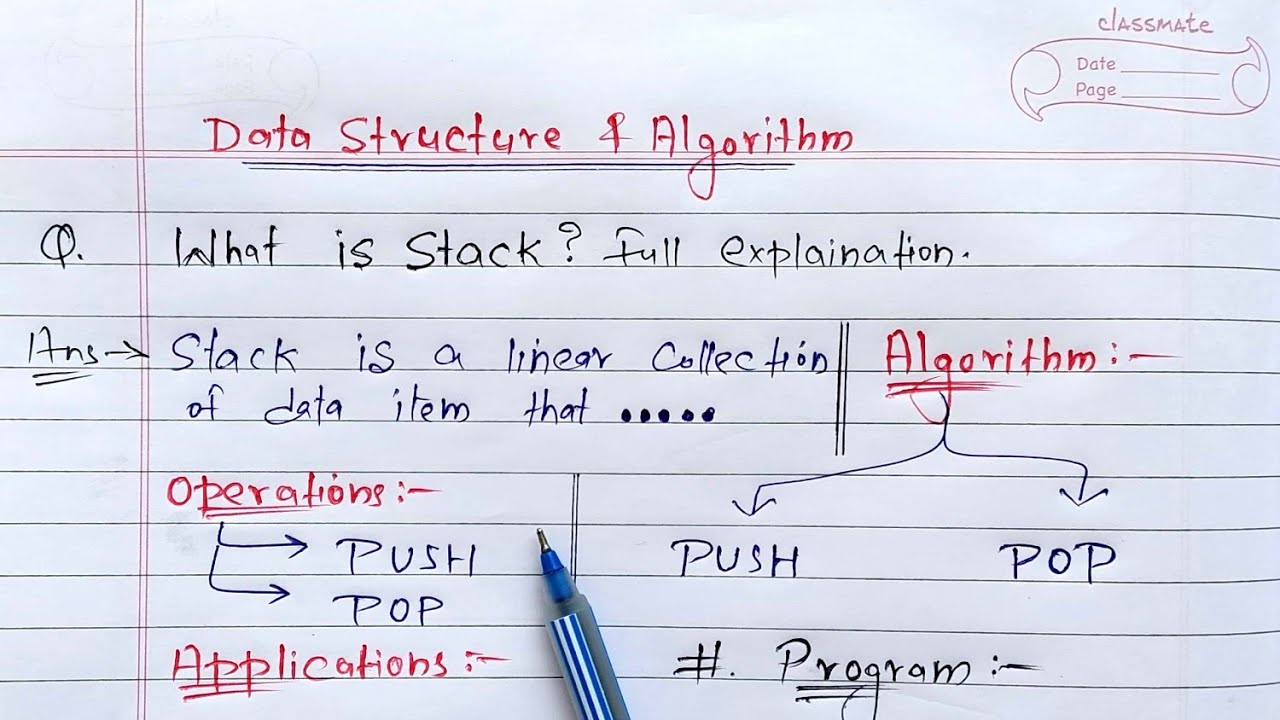 classmate
Date
Page
Data Structure & Algorithm
Q. What is Stack? Full explaination.
Ans → Stack is a linear Collection
of data item that •••••
Algorithm:-
PUSH POP
Operations:-
→ PUSH
→ POP
Applications:-
#. Program:-